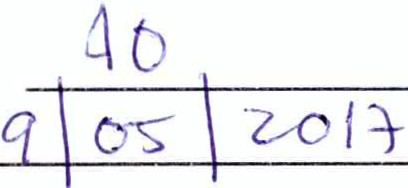 10
9 | 05 | 2017